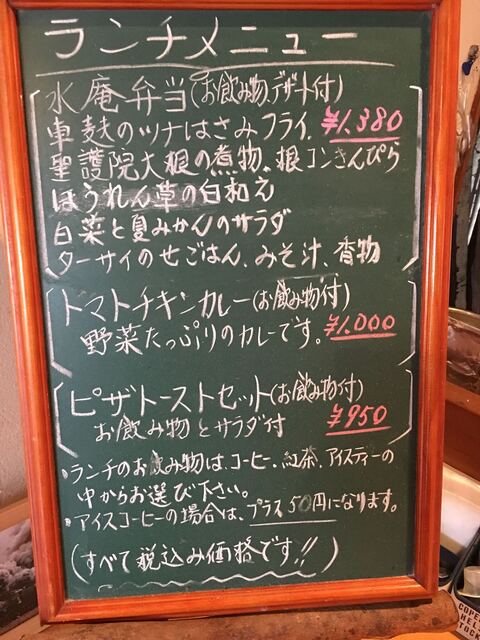 ランチメニュー
水庵弁当(お飲み物、デザート付)
車麩のツナはさみフライ、 ¥1.380
聖護院大根の煮物、根コンきんぴら
ほうれん草の白和え
白菜と夏みかんのサラダ
ターサイのせごはん、みそ汁、香物
トマトチキンカレー(お飲み物付)
野菜たっぷりのカレーです。 ¥1.000
ピザトーストセット(お飲み物付)
お飲み物とサラダ付 ¥950
・ランチのお飲み物は、コーヒー、紅茶、アイスティーの
中からお選び下さい。
・アイスコーヒーの場合は、プラス50円になります。
(すべて税込み価格です!!)
COPE
HEL
TOCK